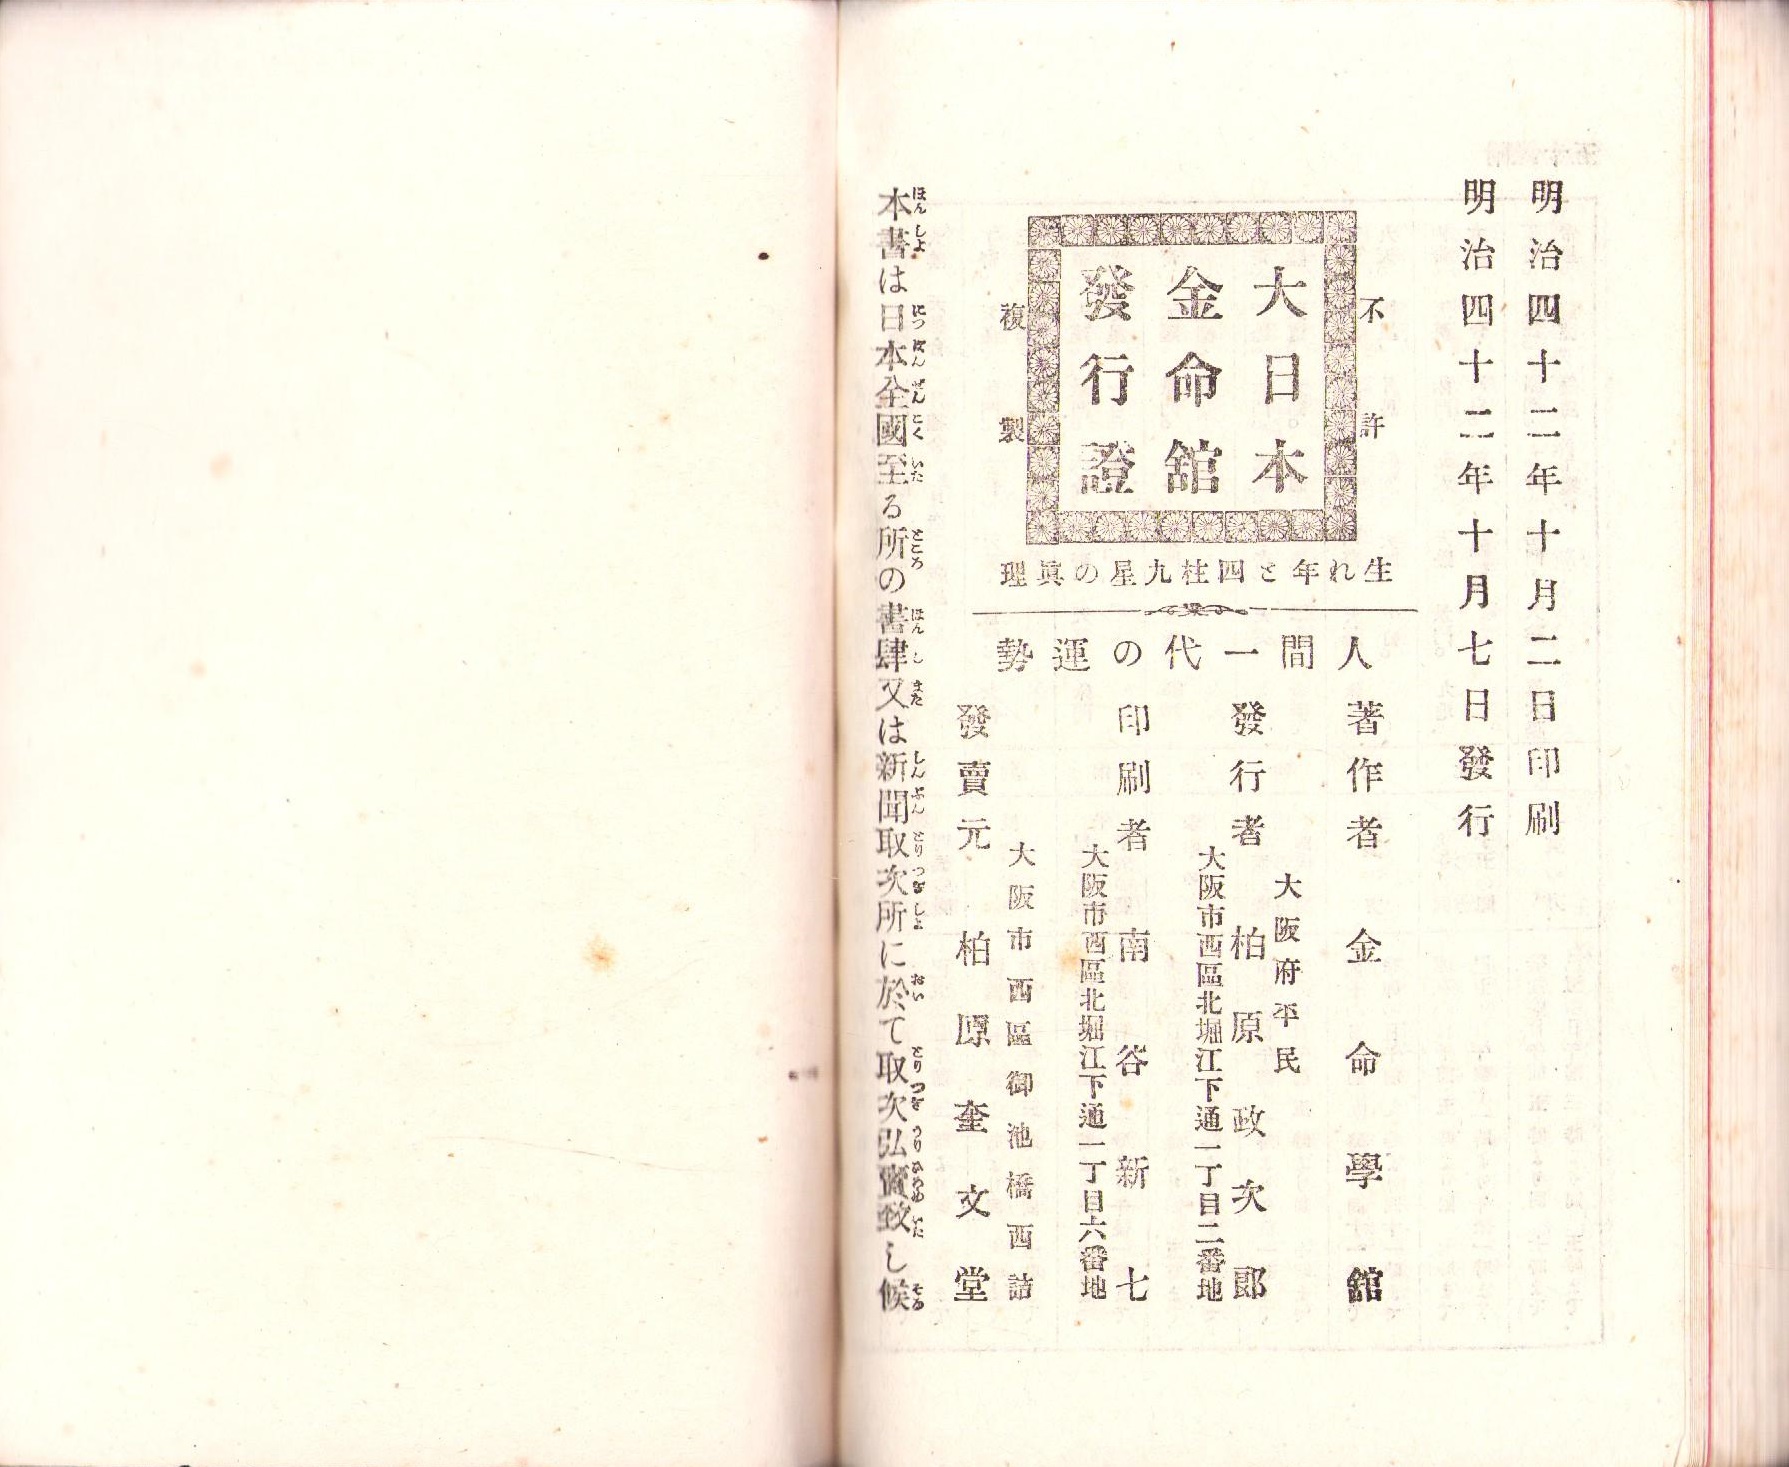 明治四十二年十月二日印刷
明治四十二年十月七日發行
不許
大日本
金命舘
發行證
複製
生れ年と四柱九星の眞理
人間一代の運勢
著作者 金命學舘
大阪府平民
發行者 柏原政次郎
大阪市西區北堀江下通一丁目二番地
印刷者 南谷新七
大阪市西區北堀江下通一丁目六番地
大阪市西區御池橋西詰
發賣元 柏原奎文堂
本書は日本全國至る所の書肆又は新聞取次所に於て取次弘賣致し候